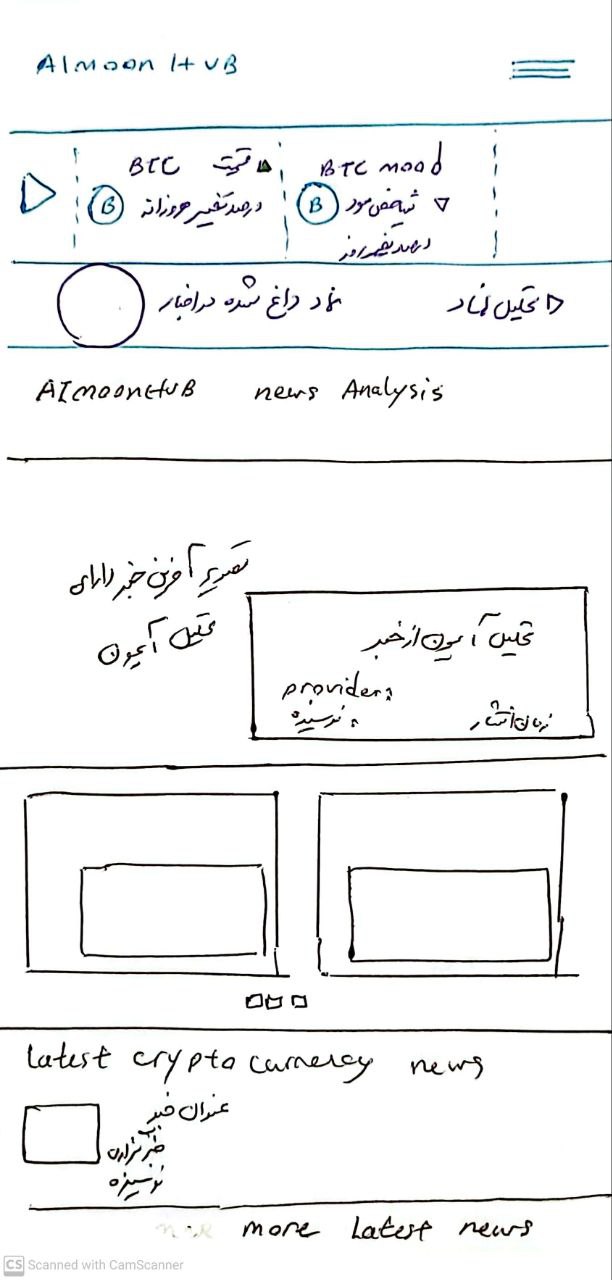 AImoon HUB
BTC قیمت
B درصد تغییر روزانه
BTC mood
B شاخص مود
درصد تغییر روز
نماد داغ شده در اخبار
تحلیل نماد
AImoonHUB news Analysis
تصویر آخرین خبر دارای
تحلیل آیمون
تحلیل آیمون از خبر
provider:
نویسنده:
زمان انتشار
Latest crypto currency news
عنوان خبر
خبرگزاری
نویسنده
more Latest news
CS Scanned with CamScanner